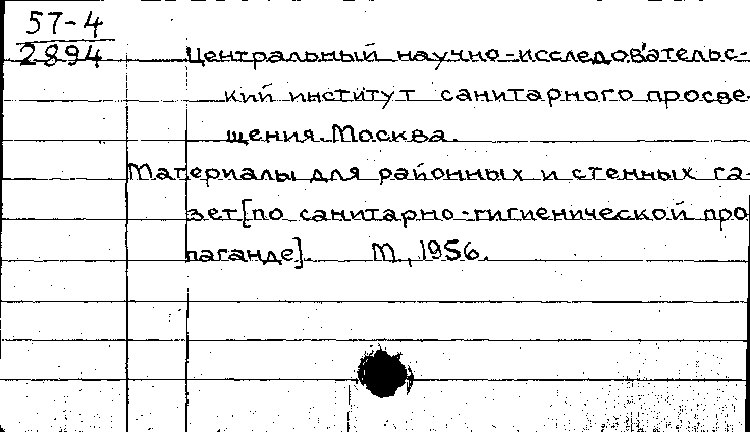 57-4
2894
Центральный научно-исследовательс-
кий институт санитарного просве-
щения. Москва.
Материалы для районных и стенных га-
зет [по санитарно-гигиенической про
паганде]. М., 1956.